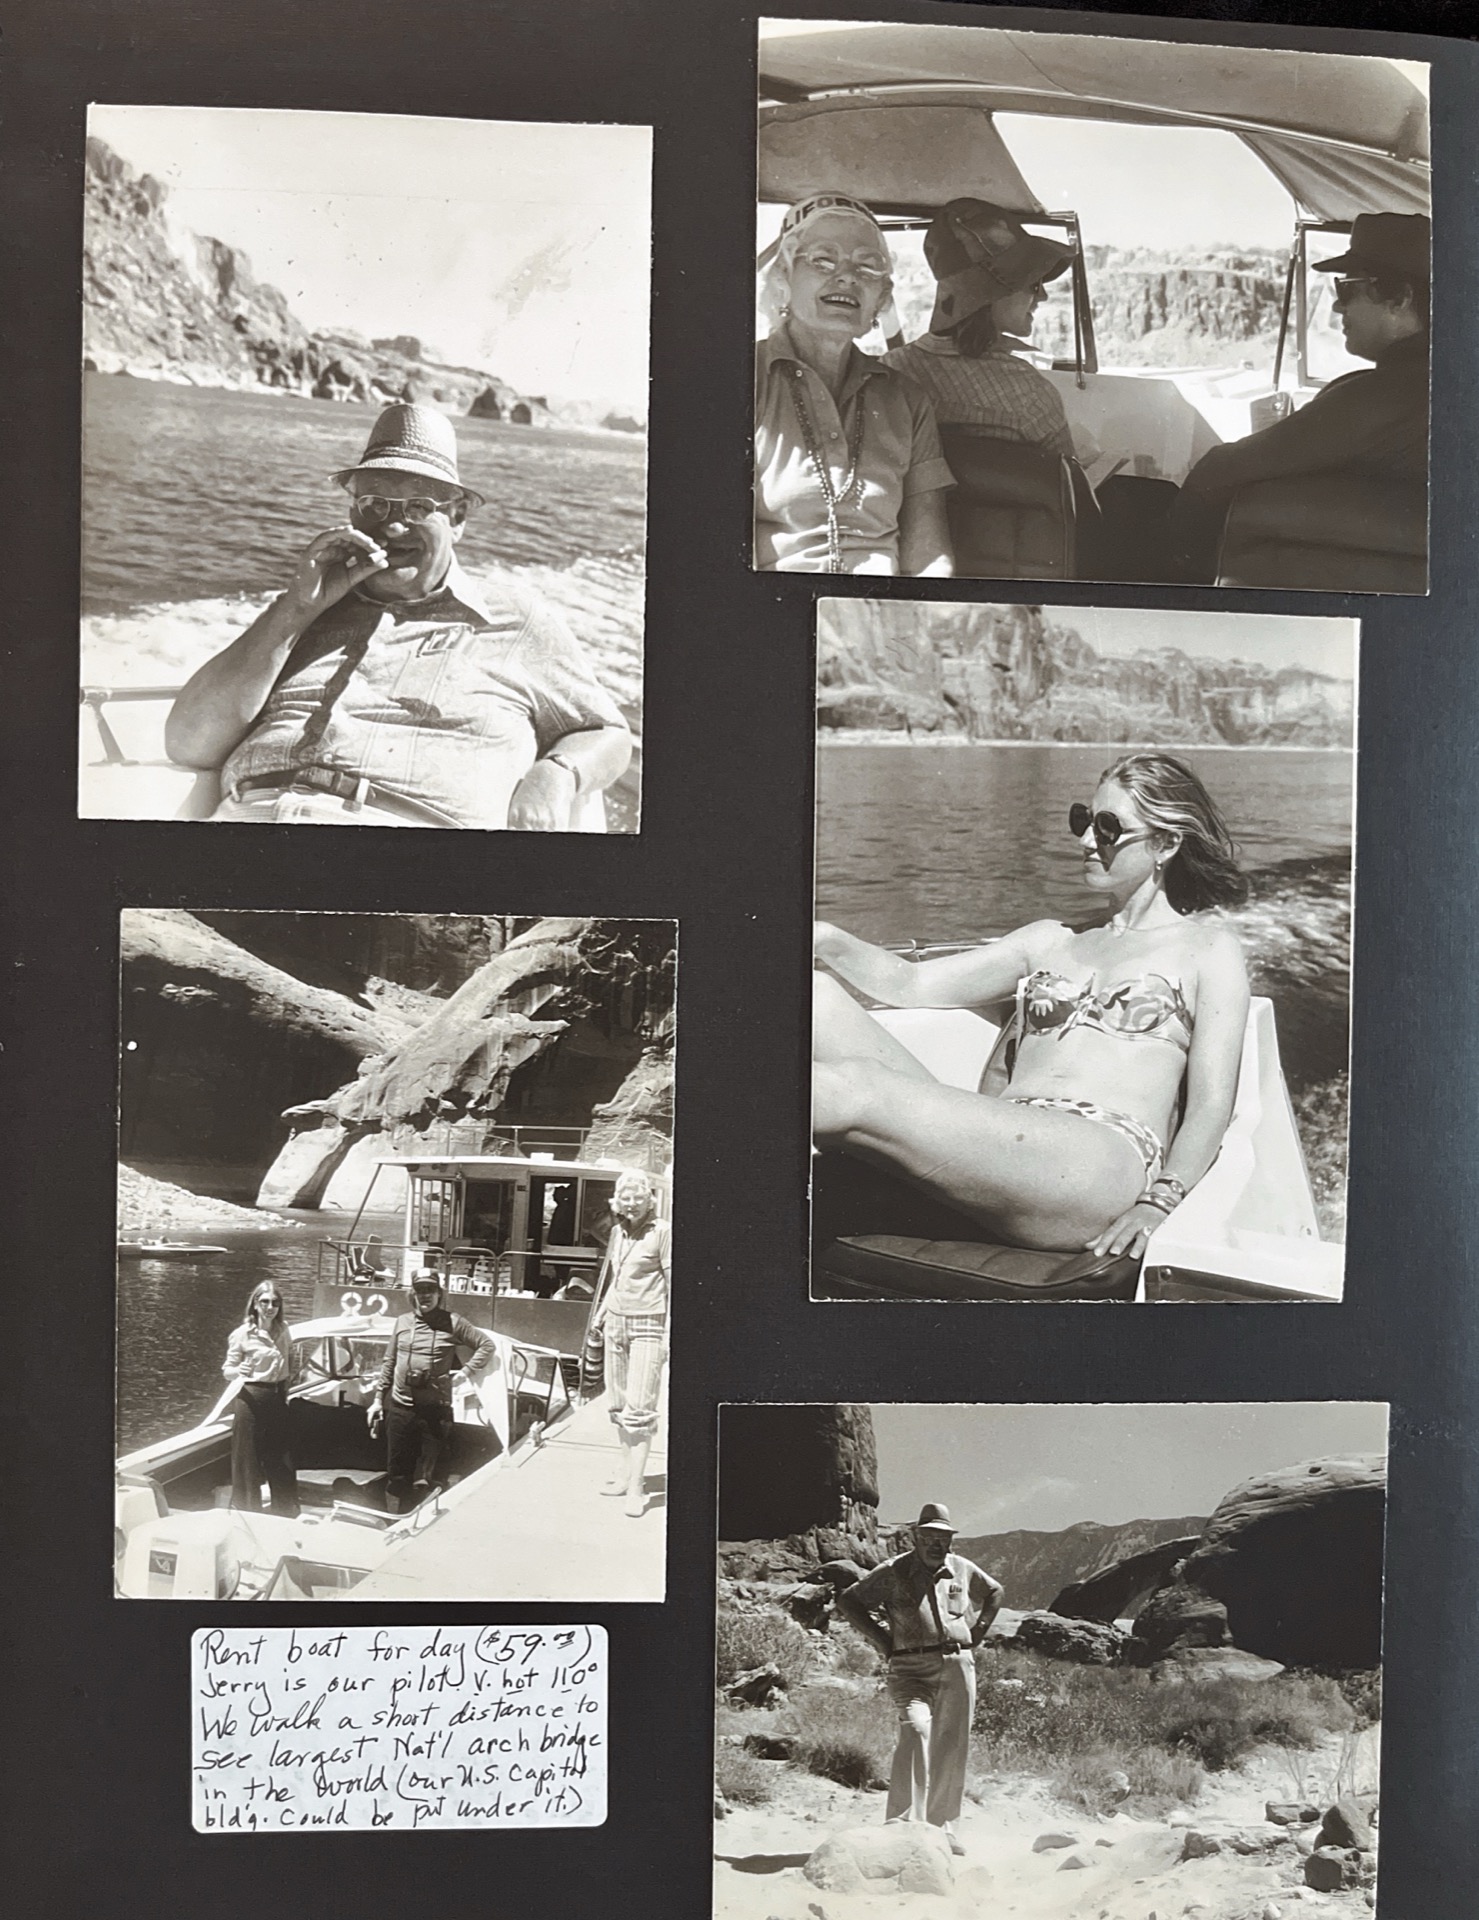 LIFORN
82
Rent boat for day ($59.00)
Jerry is our pilot. V. hot 110°
We walk a short distance to
see largest Nat'l arch bridge
in the world (our U.S. Capitol
bld'g. could be put under it.)